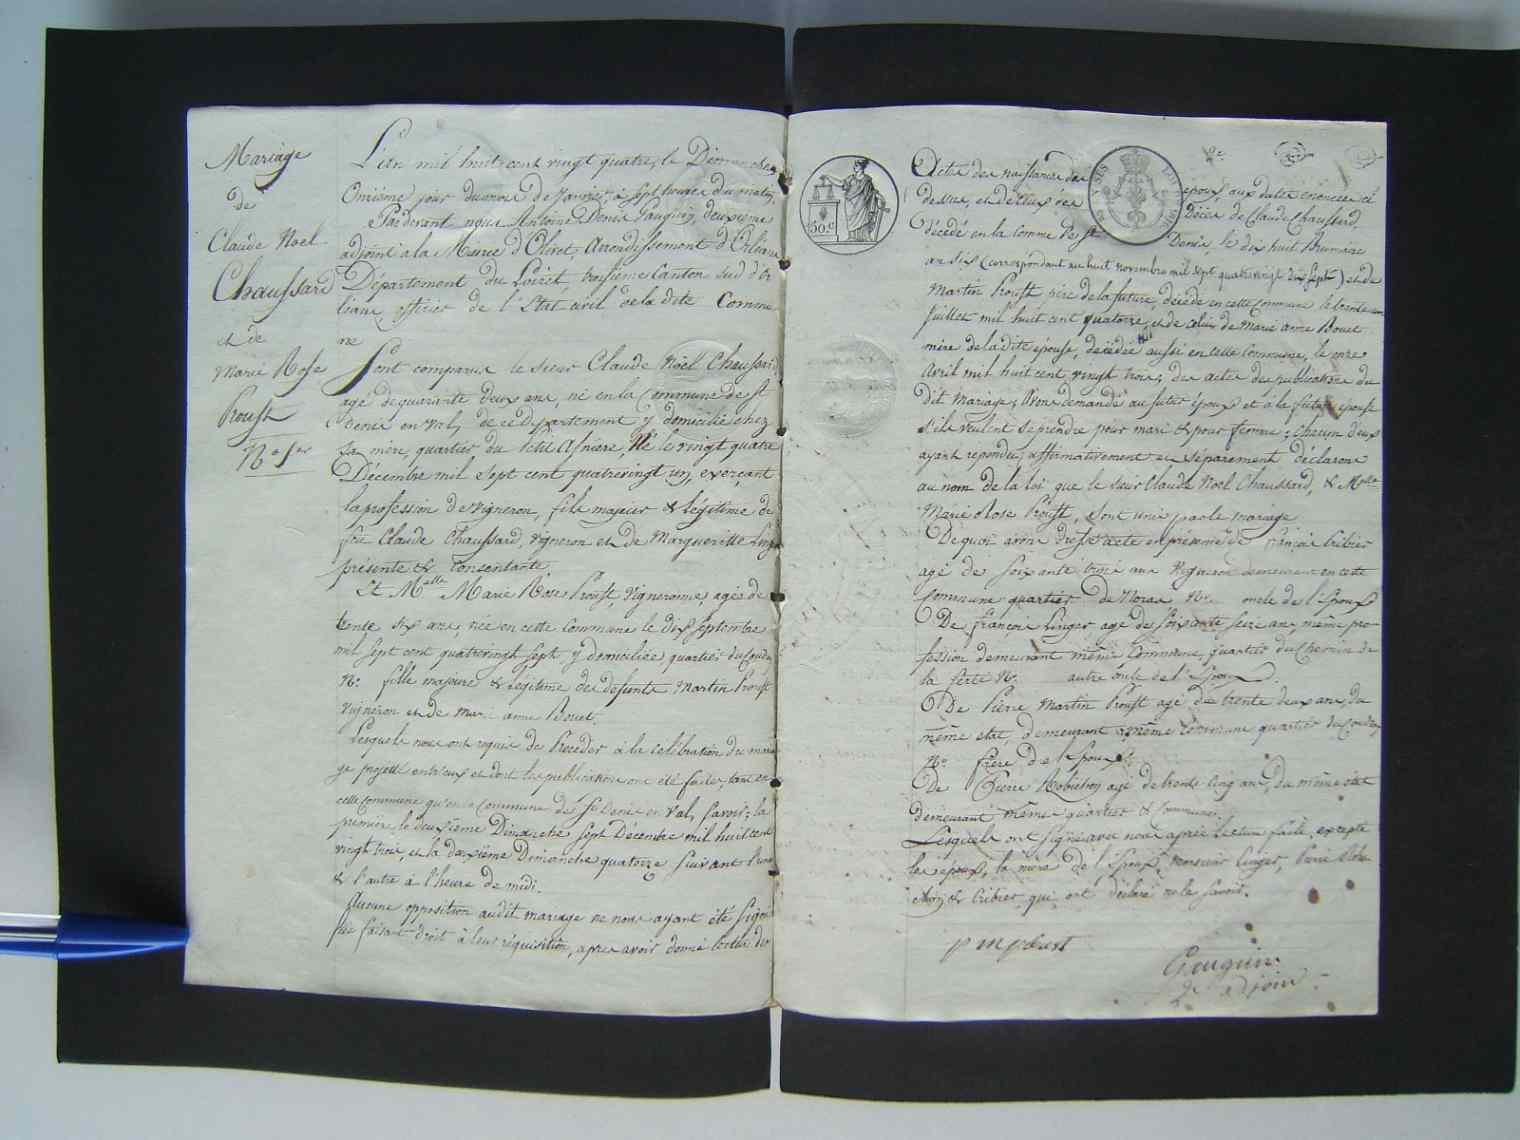 Mariage
de
Claude Noel
Chaussard
et de
Marie Rose
Proust
L'an mil huit cent vingt quatre, le Dimanche
Onzième jour du mois de Janvier, à sept heures du matin,
Pardevant nous Antoine Denis Gauguin, deuxième
adjoint à la Mairie d'Olivet, Arrondissement d'Orléans
Département du Loiret, troisième Canton sud d'Or
léans, officier de l'Etat civil de la dite Commu
ne
Sont comparus le sieur Claude Noël Chaussard
agé de quarante deux ans, né en la Commune de St
Denis en val, de ce département y domicilié chez
sa mère, quartier du Petit Asnière, Né le vingt quatre
Décembre mil sept cent quatrevingt un, exerçant
la profession de vigneron, fils majeur & légitime de
feu Claude Chaussard, vigneron et de Margueritte Linger
présente & Consentante
Et Melle Marie Rose Proust, vigneronne, agée de
trente six ans, née en cette Commune le dix septembre
mil sept cent quatrevingt sept y domiciliée quartier du
No. fille majeure & légitime des defunts Martin Proust
vigneron et de Marie anne Bouet.
Lesquels nous ont requis de Proceder à la celebration du maria
ge projetté entr'eux et dont les publications ont été faites, tant en
cette Commune qu'en la Commune de St Denis en val, savoir; la
première, le deuxième Dimanche sept Décembre mil huit cent
vingt trois, et la deuxième Dimanche quatorze suivant l'une
& l'autre à l'heure de midi.
Aucune opposition audit mariage ne nous ayant été signi
fiée faisant droit à leur réquisition, après avoir donné lecture des
50.c
Actes de naissance des
époux, aux dates énoncées ci
dessus, et de ceux des
Décès de Claude Chaussard
décédé en la Comme de St
Denis, le dix huit Brumaire
an six (correspondant au huit novembre mil sept quatrevingt dix sept) et de
Martin Proust père de la future, décédé en cette Commune le trente un
Juillet mil huit cent quatorze, et de celui de Marie anne Bouet
mère de la dite épouse, décédée aussi en cette Commune, le onze
Avril mil huit cent vingt trois; des actes de publications du
dit mariage; Avons demandé au futur époux et à la future épouse
s'ils veulent se prendre pour mari & pour femme; chacun d'eux
ayant répondu affirmativement et séparement déclarons
au nom de la loi que le sieur Claude Noël Chaussard, & Melle
Marie Rose Proust, sont unis par le mariage
De quoi avons dressé acte en présence de françois Cribier
agé de soixante trois ans vigneron demeurant en cette
Commune quartier de Noras No. oncle de l'Epoux
De françois Linger agé de soixante seize ans, même pro-
fession demeurant même Commune, quartier du Chemin de
la ferté No. autre oncle de l'Epoux.
De Pierre Martin Proust agé de trente deux ans, du
même état, demeurant même Commune quartier du
No. frère de l'Epouse
De Pierre agé de trente cinq ans, du même état
demeurant même quartier & Commune.
Lesquels ont signé avec nous après lecture faite, excepté
les époux, la mère de l'Epoux, Linger, Pierre
& Cribier qui ont déclaré ne le savoir.
p m proust
Gauguin
adjoint